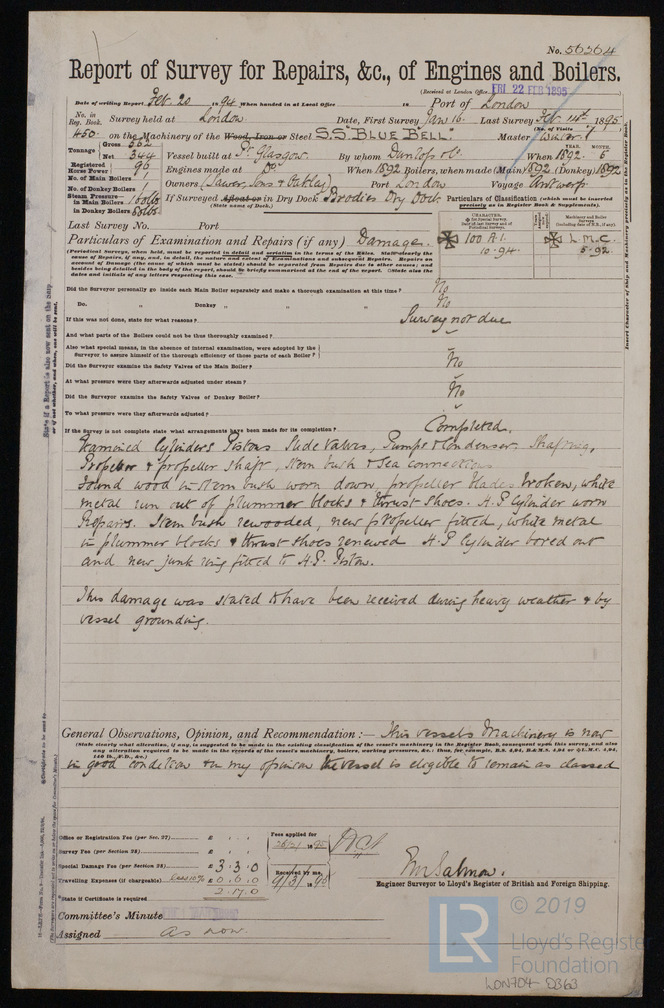 No. 56364
Report of Survey for Repairs, &c., of Engines and Boilers.
(Received at London Office FRI 22 FEB 1895)
Date of writing Report Feb 20 1894 When handed in at Local Office 18 Port of London
No. in Reg. Book. Survey held at London Date, First Survey Jan 16. Last Survey Feb 14th 1895
(No. of Visits 7)
450 on the Machinery of the Wood, Iron or Steel S.S. "BLUE BELL" Master
Tonnage Gross 552 Net 344 Vessel built at Pt Glasgow. By whom Dunlop & Co. When 1892 MONTH. 5
Registered Horse Power 96 Engines made at Do When 1892 Boilers, when made (Main) 1892 (Donkey) 1892
No. of Main Boilers 1
No. of Donkey Boilers 1 Owners Port London Voyage Antwerp
Steam Pressure in Main Boilers 160 lbs
in Donkey Boilers If Surveyed Afloat or in Dry Dock Brodies Dry Dock
(State name of Dock.)
Particulars of Classification (which must be inserted precisely as in Register Book & Supplements).
Last Survey No. Port
CHARACTER.
100 A.1.
10.94.
L.M.C.
5.92
Particulars of Examination and Repairs (if any) Damage.
Did the Surveyor personally go inside each Main Boiler separately and make a thorough examination at this time? No
Do. " Donkey " " " No
If this was not done, state for what reasons? Survey not due
And what parts of the Boilers could not be thus thoroughly examined? ~
Also what special means, in the absence of internal examination, were adopted by the Surveyor to assure himself of the thorough efficiency of those parts of each Boiler? ~
Did the Surveyor examine the Safety Valves of the Main Boiler? No
At what pressure were they afterwards adjusted under steam? ~
Did the Surveyor examine the Safety Valves of Donkey Boiler? No
To what pressure were they afterwards adjusted? ~
If the Survey is not complete state what arrangements have been made for its completion? Completed.
Examined Cylinders Pistons Slide Valves, Pumps & Condenser. Shafting,
Propeller & propeller shaft, Stern bush & Sea connections
Found wood in stern bush worn down, propeller blades broken, white
metal run out of plummer blocks & thrust shoes. H.P. Cylinder worn
Repairs. Stern bush rewooded, new propeller fitted, white metal
in plummer blocks & thrust shoes renewed H.P. Cylinder bored out
and new junk ring fitted to H.P. Piston.
This damage was stated to have been received during heavy weather & by
vessel grounding.
General Observations, Opinion, and Recommendation :— This vessel's Machinery is now
(State clearly what alteration, if any, is suggested to be made in the existing classification of the vessel's machinery in the Register Book, consequent upon this survey, and also
any alteration required to be made in the records of the vessel's machinery, boilers, working pressures, &c.: thus, for example, B.S. 4,94, B.&M.S. 4,94 or L.M.C. 4,94,
140 lb., F.D., &c.)
in good condition & in my opinion the vessel is eligible to remain as classed
Office or Registration Fee (per Sec. 27) £ : :
Survey Fee (per Section 28) £ : :
Special Damage Fee (per Section 28) £ 3 : 3 : 0
Travelling Expenses (if chargeable) Less 10% £ 0 . 6 . 0
2 . 17 . 0
*State if Certificate is required
Fees applied for
26/2/1895
Received by me,
9/3/1895
Engineer Surveyor to Lloyd's Register of British and Foreign Shipping.
Committee's Minute
Assigned as now.
© 2019
LR
Lloyd's Register
Foundation
LON704-0363